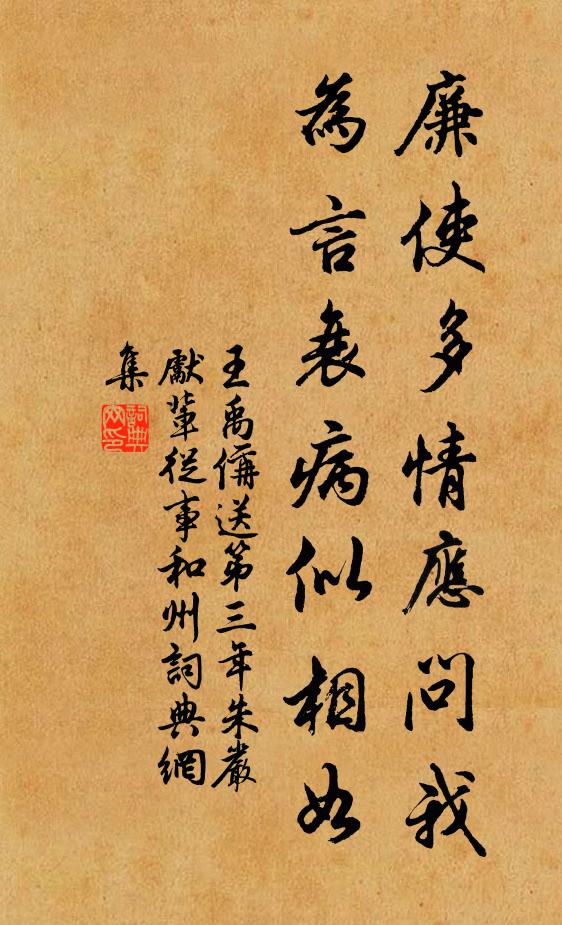 廉使多情應問我
為言衰病似相如
王禹偁送第三年朱嚴
獻輩從事和州詞典網
集
詞典網印